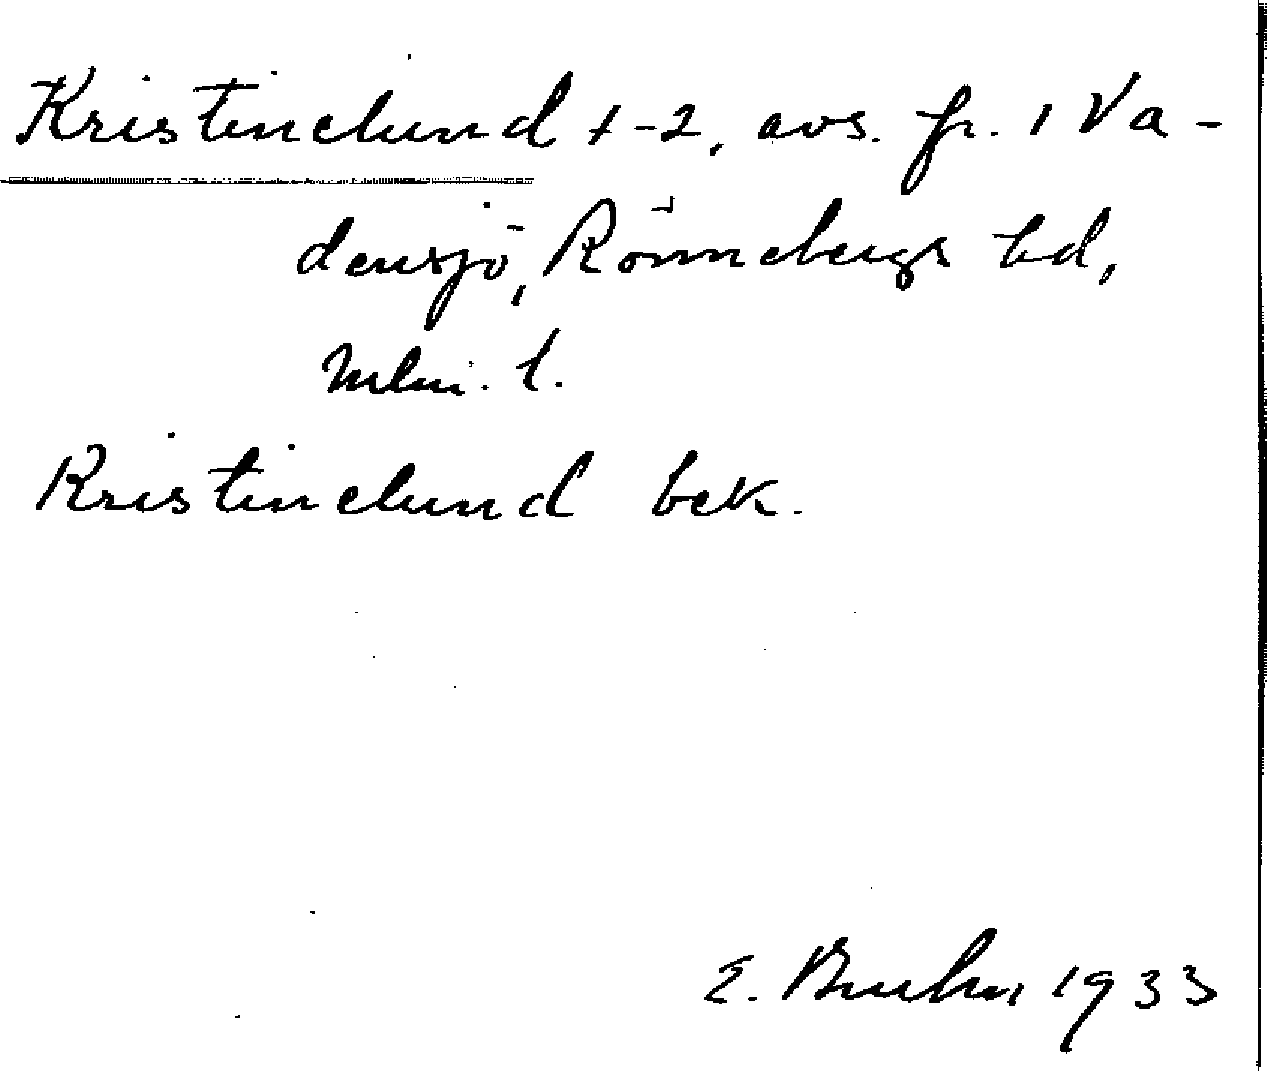 Kristinelund 1-2, avs. fr. 1 Va-
densjö, Rönnebergs hd,
Mlm. l.
Kristinelund bek.
E. Bruhn 1933